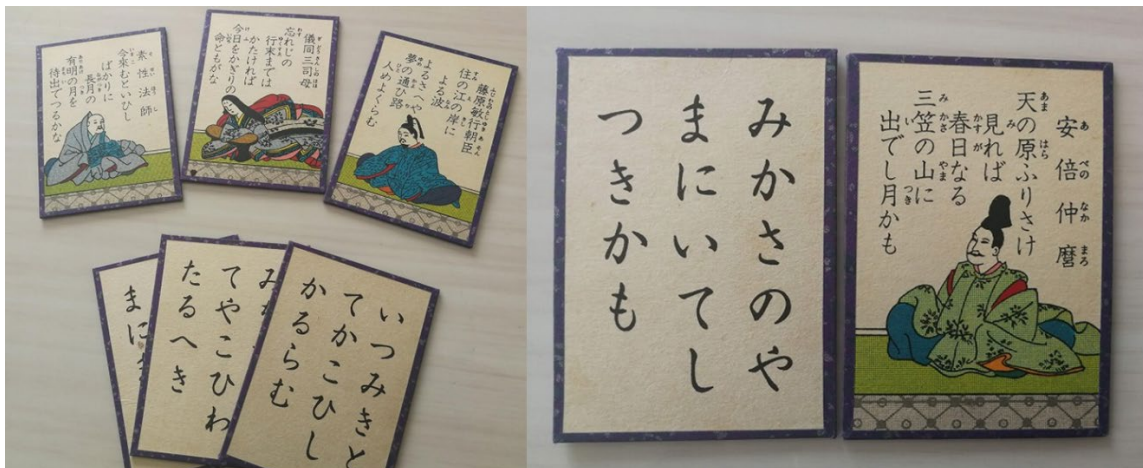 素性法師
今來むといひし
ばかりに
長月の
有明の月を
待出でつるかな
儀同三司母
忘れじの
行末までは
かたければ
今日をかぎりの
命ともがな
藤原敏行朝臣
住の江の岸に
よる波
よるさへや
夢の通ひ路
人めよくらむ
まに
み
てやこひわ
たるへき
いつみきと
てかこひし
かるらむ
みかさのや
まにいてし
つきかも
安倍仲麿
天の原ふりさけ
見れば
春日なる
三笠の山に
出でし月かも